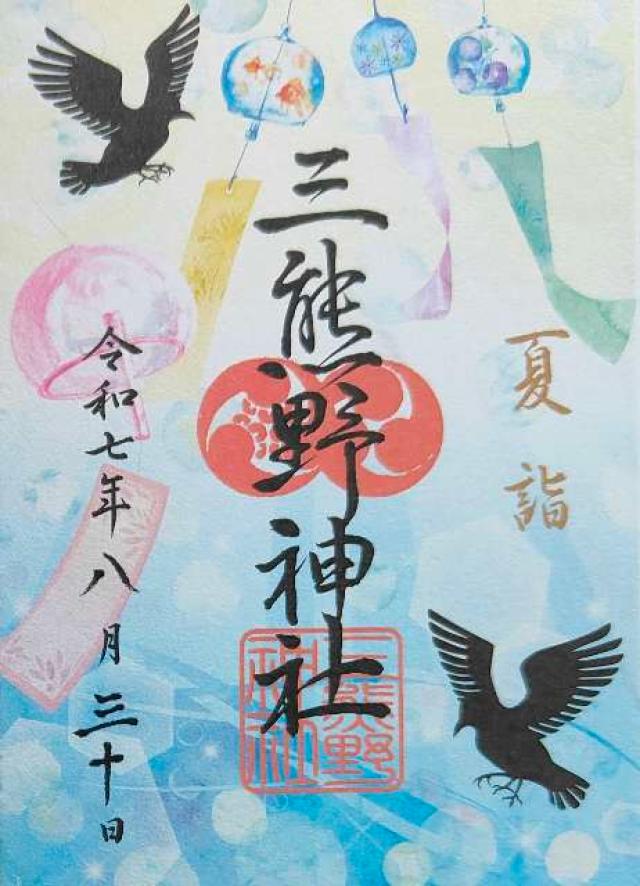 夏詣
三熊野神社
令和七年八月三十日
三熊野
神社